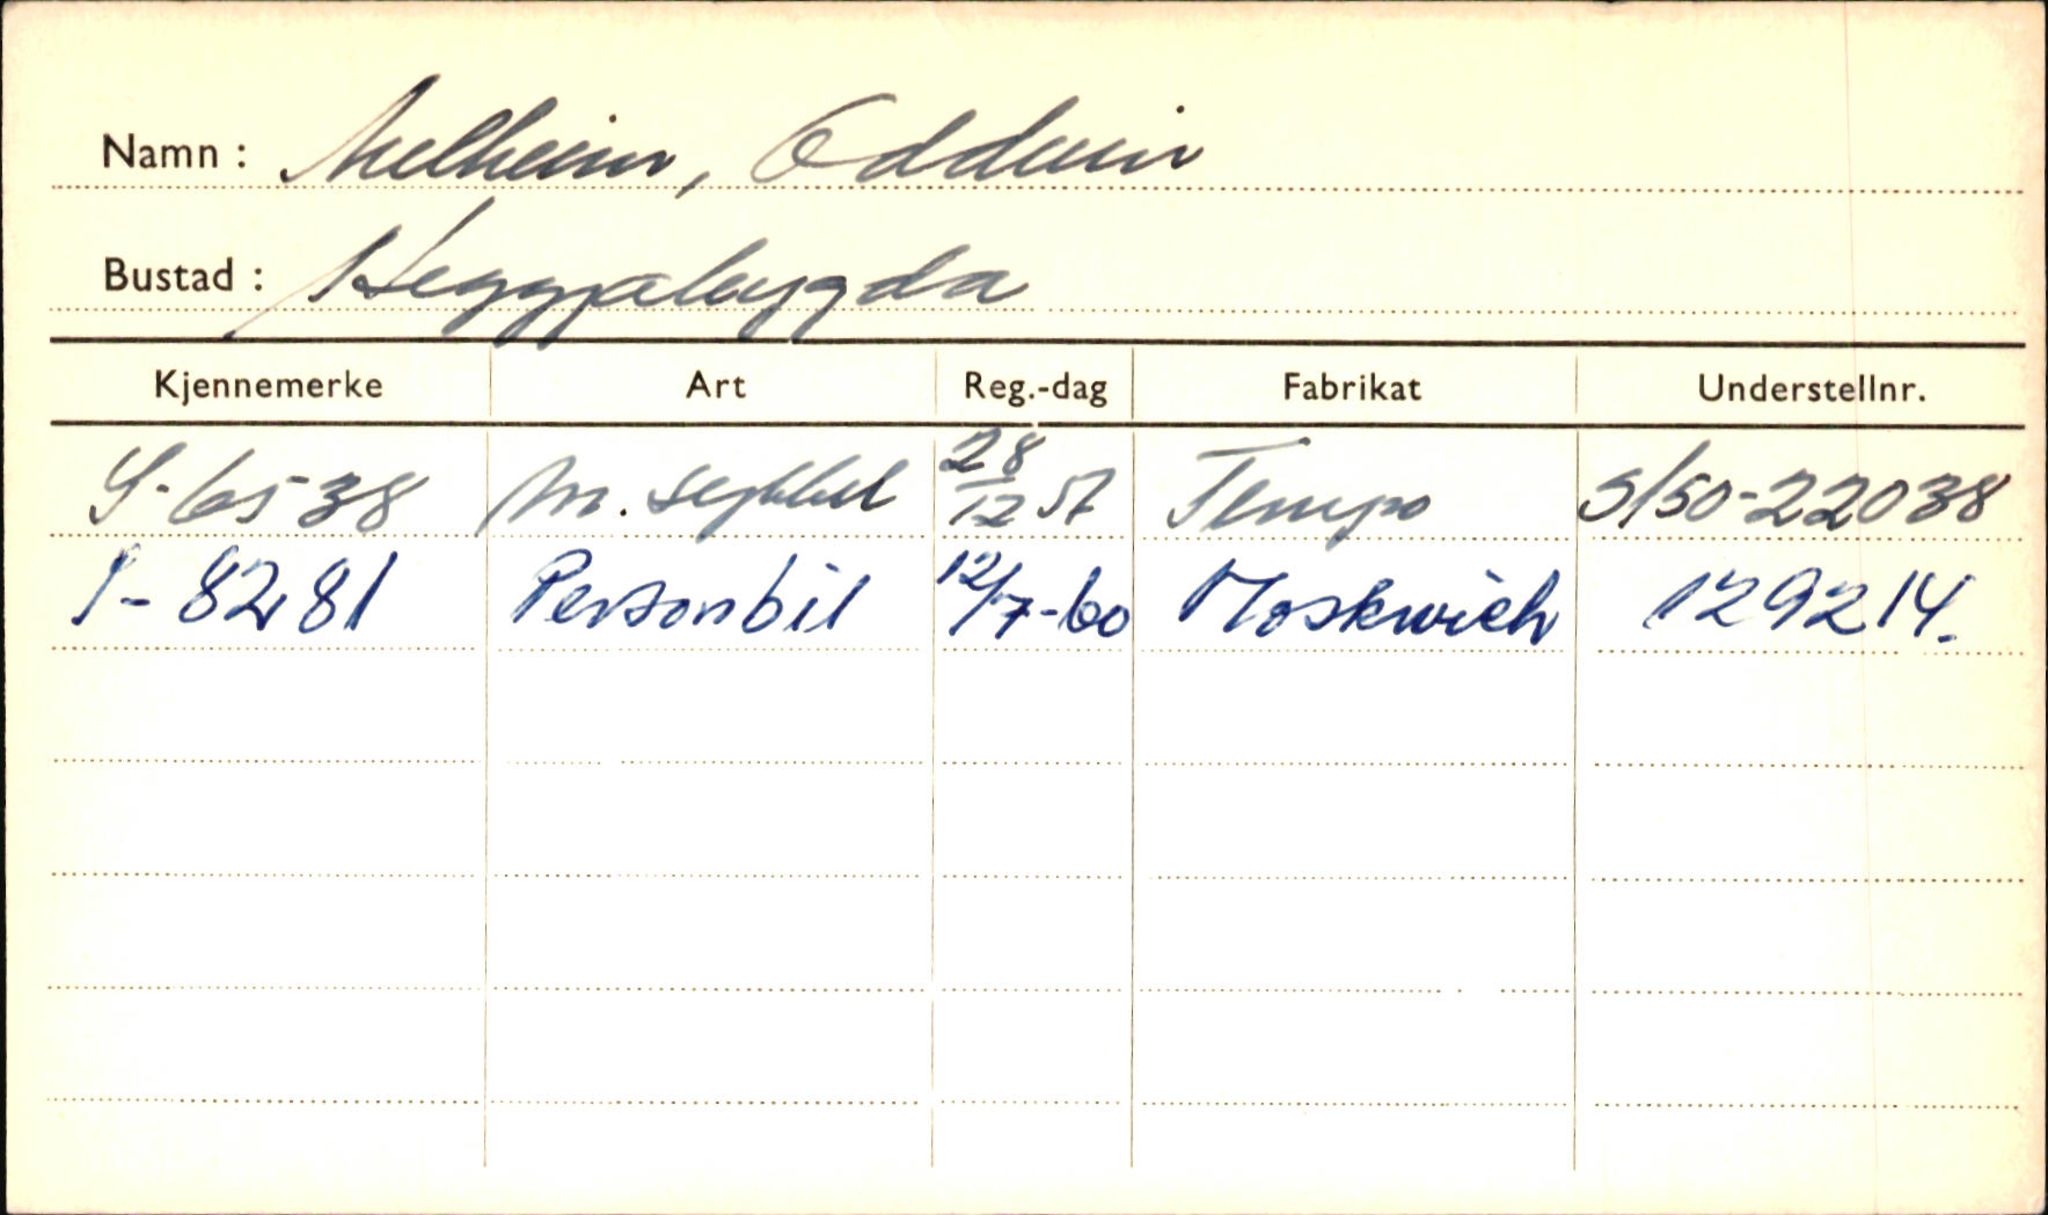 Namn: Melheim, Oddvin
Bustad: Heggjabygda
Kjennemerke Art Reg.-dag Fabrikat Understellnr.
S-6538 M. sykkel 28/12 57 Tempo S/50-22038
S-8281 Personbil 12/7-60 Moskwich 129214.